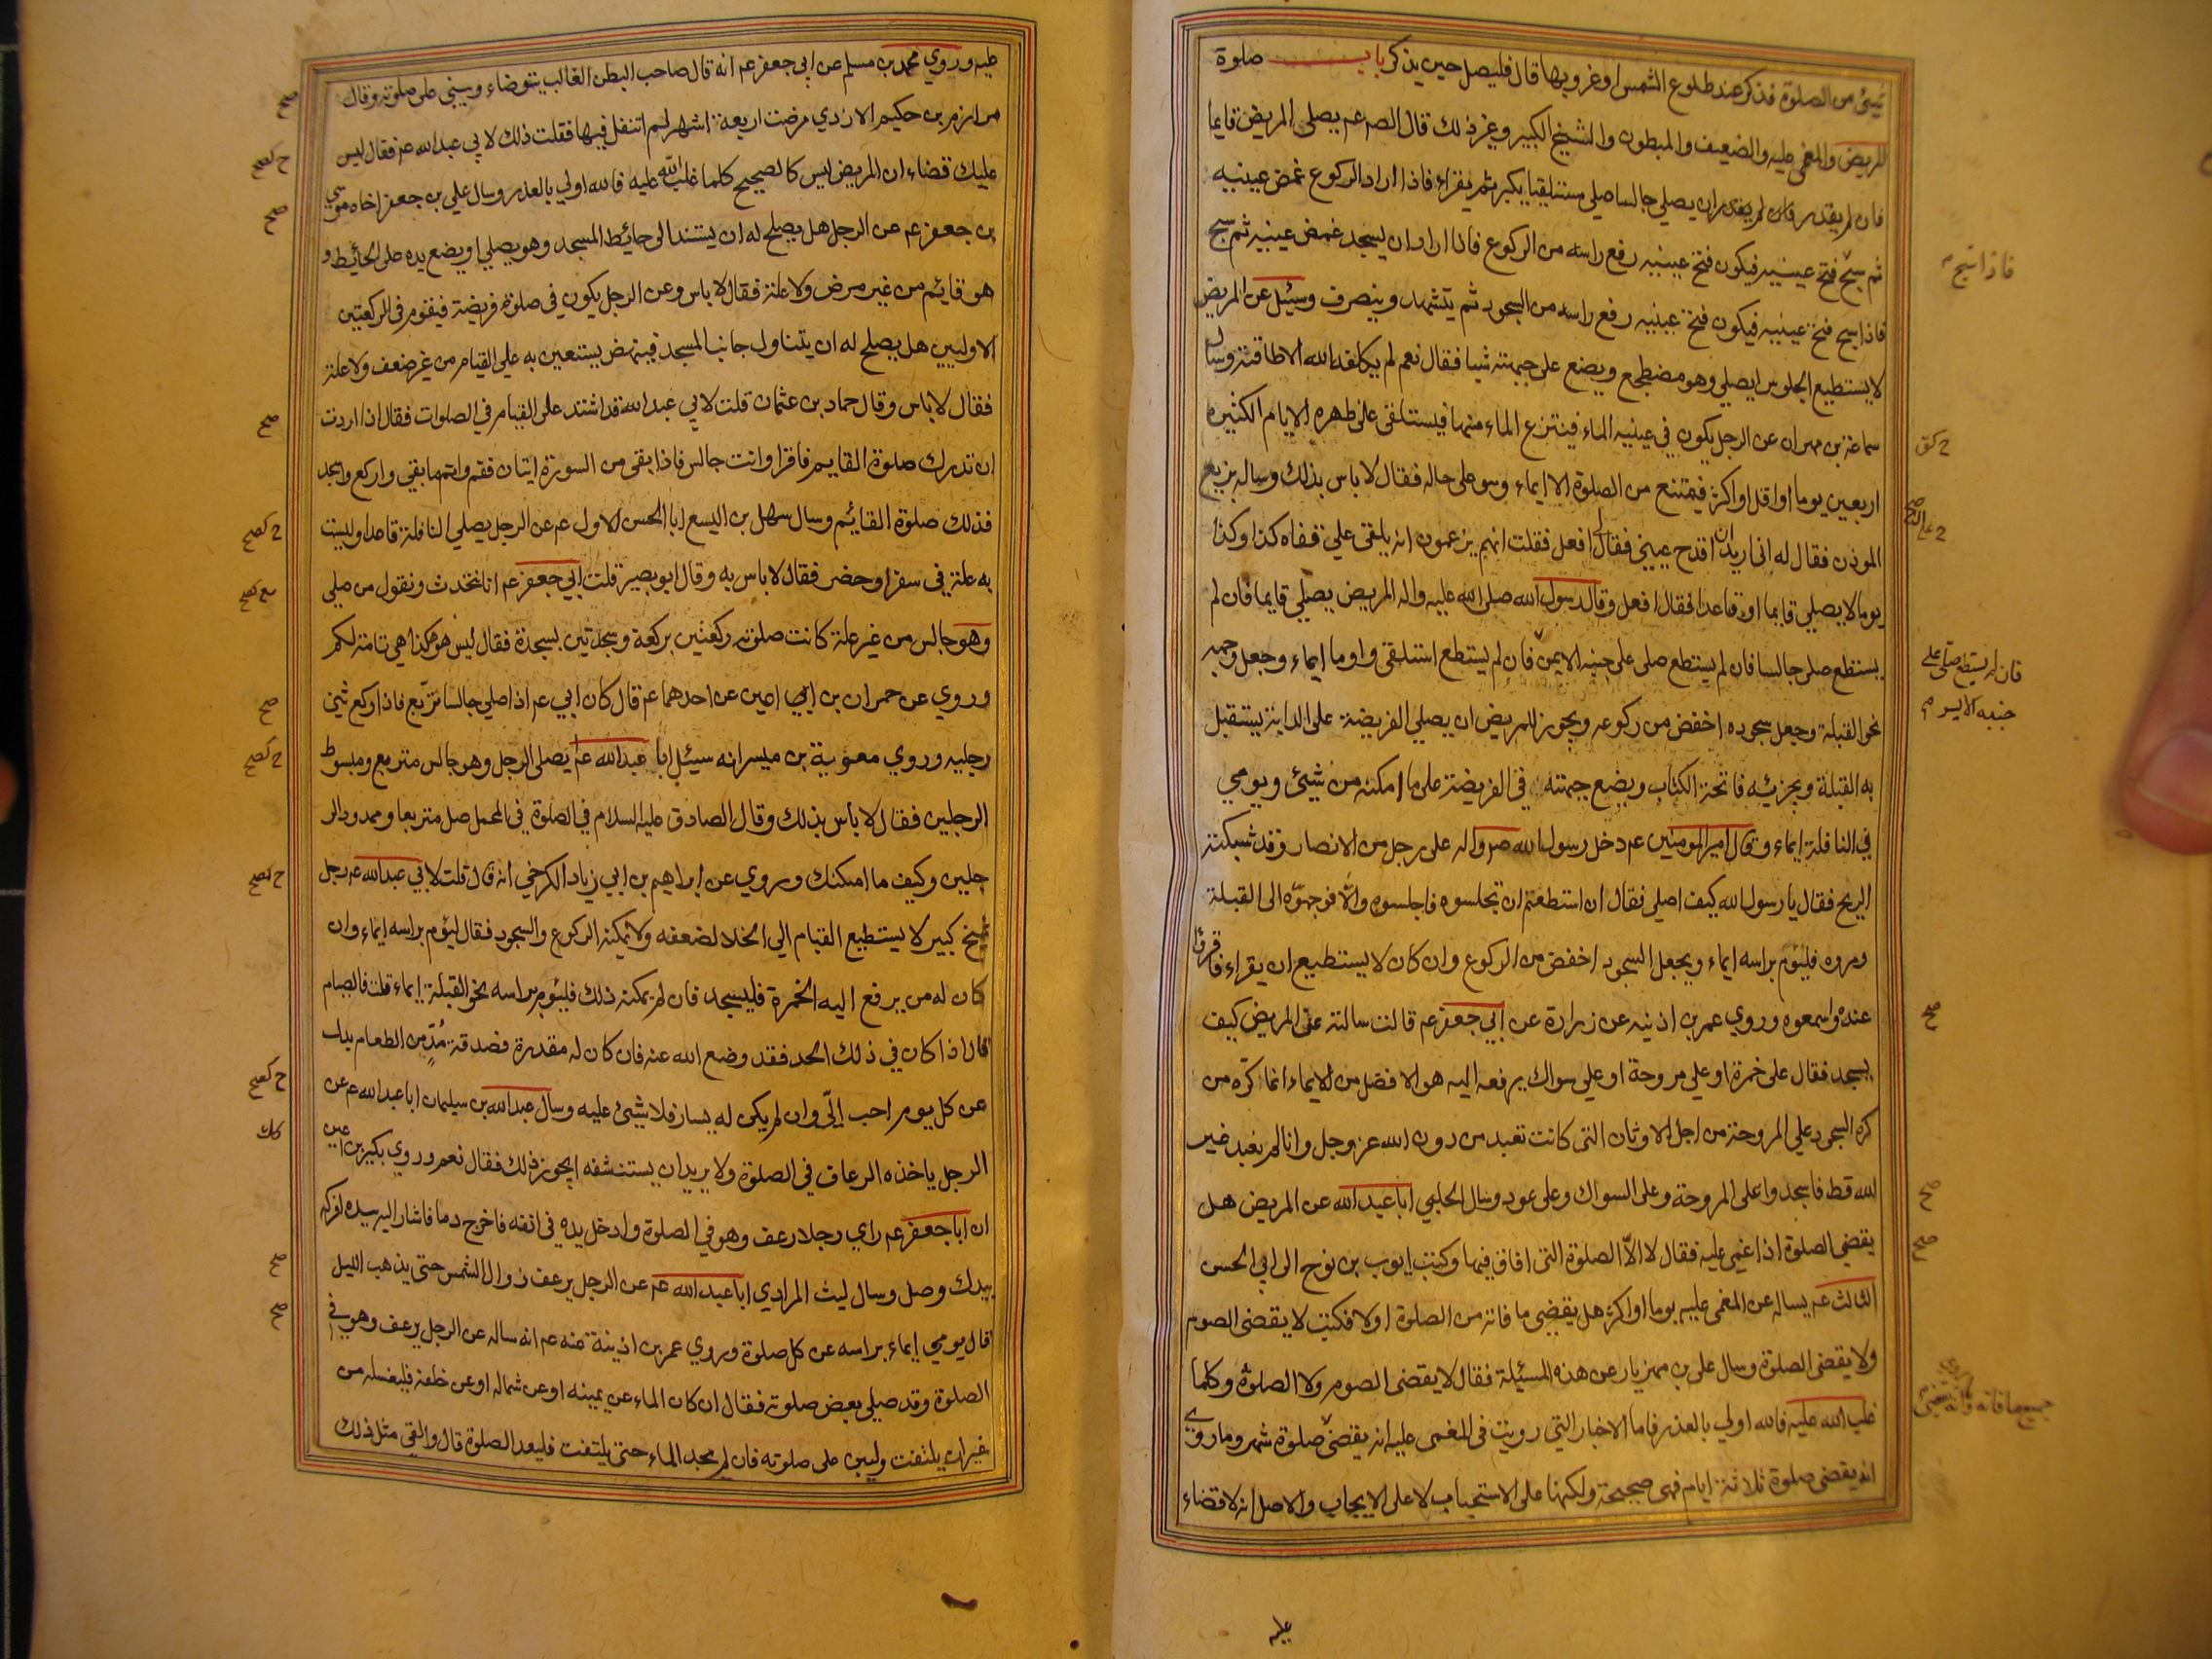 شيئ من الصلوة فذكر عند طلوع الشمس او غروبها قال فليصل حين يذكر باب صلوة
المريض والمغمى عليه والضعيف والمبطون والشيخ الكبير وغير ذلك قال الصم عم يصلى المريض قايما
فان لم يقدر ان يصلي جالسا صلى مستلقيا يكبر ثم يقراء فاذا اراد الركوع غمض عينيه
ثم سبح فاذا سبح فتح عينيه فيكون فتح عينيه رفع راسه من الركوع فاذا اراد ان يسجد غمض عينيه ثم سبح
فاذا سبح فتح عينيه فيكون فتح عينيه رفع راسه من السجود ثم يتشهد وينصرف وسئل عن المريض
لا يستطيع الجلوس ايصلي وهو مضطجع ويضع على جبهته شيا فقال نعم لم يكلفه الله الا طاقته وسال
سماعة بن مهران عن الرجل يكون في عينيه الماء فينتزع الماء منها فيستلقى على ظهره الايام الكثيره
اربعين يوما او اقل او اكثر فيمتنع من الصلوة الا ايماء وهو على حاله فقال لا باس بذلك وساله بزيع
الموذن فقال له اني اريد ان اقدح عيني فقال لي افعل فقلت انهم يزعمون انه يلقى علي قفاه كذا وكذا
يوما لا يصلي قايما او قاعدا فقال افعل وقال رسول الله صلى الله عليه واله المريض يصلي قايما فان لم
يستطع صلى جالسا فان لم يستطع صلى على جنبه الايمن فان لم يستطع استلقى واوما ايماء وجعل وجهه
نحو القبلة وجعل سجوده اخفض من ركوعه ويجوز للمريض ان يصلي الفريضة على الدابة يستقبل
به القبلة ويجزئه فاتحة الكتاب ويضع جبهته في الفريضة على ما امكنه من شيئ ويومي
في النافلة ايماء وقال امير المومنين عم دخل رسول الله ص واله على رجل من الانصار وقد شبكته
الريح فقال يا رسول الله كيف اصلي فقال ان استطعتم ان تجلسوه فاجلسوه والا فوجهوه الى القبلة
ومروه فليؤم براسه ايماء ويجعل السجود اخفض من الركوع وان كان لا يستطيع ان يقراء فاقرؤا
عنده واسمعوه وروي عمر بن اذنيه عن زرارة عن ابي جعفر عم قالت سالته عن المريض كيف
يسجد فقال على خمرة او على مروحة او على سواك يرفعه اليه هو الافضل من الايماء انما كره من
كره السجود علي المروحة من اجل الاوثان التى كانت تعبد من دون الله عز وجل وانا لم نعبد غير
الله قط فاسجدوا على المروحة وعلى السواك وعلى عود وسال الحلبي ابا عبد الله عن المريض هل
يقضي الصلوة اذا غمي عليه فقال لا الا الصلوة التى افاق فيها وكتب ايوب بن نوح الى ابي الحسن
الثالث عم يساله عن المغمى عليه يوما او اكثر هل يقضي ما فاته من الصلوة اولا فكتب لا يقضى الصوم
ولا يقضى الصلوة وسال على بن مهزيار عن هذه المسئيلة فقال لا يقضى الصوم ولا الصلوة وكلما
غلب الله عليه فالله اولي بالعذر فاما الاخبار التي رويت في المغمى عليه انه يقضى صلوة شهر وما روي
انه يقضى صلوة ثلاثة ايام فهى صحيحة ولكنها على الاستحباب لا على الايجاب والاصل انه لا قضاء
عليه
فان لم يستطع صلى على
جنبه الايسر م
عليه وروي محمد بن مسلم عن ابي جعفر عم انه قال صاحب البطن الغالب يتوضاء ويبنى على صلوته وقال
مرازم بن حكيم الازدي مرضت اربعة اشهر لم اتنفل فيها فقلت ذلك لابي عبد الله عم فقال ليس
عليك قضاء ان المريض ليس كالصحيح كلما غلب الله عليه فالله اولي بالعذر وسال علي بن جعفر اخاه موسي
بن جعفر عم عن الرجل هل يصلح له ان يستند الى حائيط المسجد وهو يصلي او يضع يده على الحائيط و
هو قايم من غير مرض ولا علة فقال لا باس وعن الرجل يكون في صلوة فريضة فيقوم فى الركعتين
الاوليين هل يصلح له ان يتناول جانب المسجد فينهض يستعين به على القيام من غير ضعف ولا علة
فقال لا باس وقال حماد بن عثمان قلت لابي عبد الله قد اشتد على القيام في الصلوات فقال اذا اردت
ان تدرك صلوة القايم فاقرا وانت جالس فاذا بقى من السورة ايتان فقم واتم ما بقي واركع واسجد
فذلك صلوة القائيم وسال سهل بن اليسع ابا الحسن الاول عم عن الرجل يصلي النافلة قاعدا وليست
به علة في سفر او حضر فقال لا باس به وقال ابو بصير قلت لابي جعفر عم انا نتحدث ونقول من صلى
وهو جالس من غير علة كانت صلوته ركعتين بركعة وسجدتين بسجدة فقال ليس هو هكذا هي تامة لكم
وروي عن حمران بن اعين عن احدهما عم قال كان ابي عم اذا صلي جالسا تربع فاذا ركع ثنى
رجليه وروي معوية بن ميسر انه سيئل ابا عبد الله عم يصلى الرجل وهو جالس متربع ومبسوط
الرجلين فقال لا باس بذلك وقال الصادق عليه السلام في الصلوة في المحمل صل متربعا وممدود الر
جلين وكيف ما امكنك وروي عن ابراهيم بن ابي زياد الكرخي انه قال قلت لابي عبد الله عم رجل
شيخ كبير لا يستطيع القيام الي الخلا لضعفه ولا يمكنه الركوع والسجود فقال ليؤم براسه ايماء وان
كان له من يرفع اليه الخمرة فليسجد فان لم يمكنه ذلك فليؤم براسه نحو القبلة ايماء قلت فالصيام
قال اذا كان في ذلك الحد فقد وضع الله عنه فان كان له مقدرة فصدقة مد من الطعام بدل
عن كل يوم احب الي وان لم يكن له يسار فلا شيئ عليه وسال عبد الله بن سيلمان ابا عبد الله عم عن
الرجل ياخذه الرعاف في الصلوة ولا يريد ان يستنشفه ايجوز ذلك فقال نعم وروي بكير بن اعين
ان ابا جعفر عم راي رجلا رعف وهو في الصلوة وادخل يده في انفه فاخرج دما فاشار اليه بيده افركه
بيدك وصل وسال ليث المرادي ابا عبد الله عم عن الرجل يرعف زوال الشمس حتى يذهب الليل
قال يومي ايماء براسه عن كل صلوة وروي عمر بن اذينة عنه عم انه ساله عن الرجل يرعف وهو في
الصلوة وقد صلي بعض صلوته فقال ان كان الماء عن يمينه او عن شماله او عن خلفه فليغسله من
غير ان يلتفت وليبن على صلوته فان لم يجد الماء حتى يلتفت فليعد الصلوة قال والقى مثل ذلك